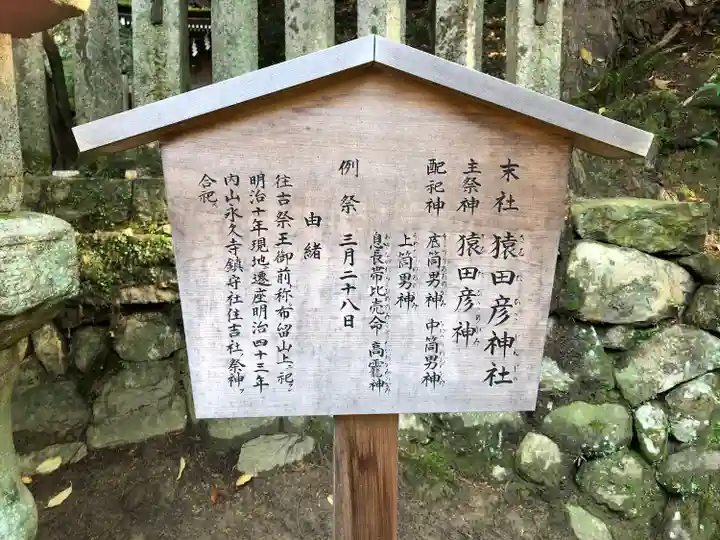 末社 猿田彦神社
主祭神 猿田彦神
配祀神 底筒男神 中筒男神
上筒男神
息長帯比売命 高龗神
例祭 三月二十八日
由緒
往古祭王御前称布留山上ニ祀ヅ
明治十年現地遷座明治四十三年
内山永久寺鎮守社住吉社ノ祭神ヲ
合祀ス